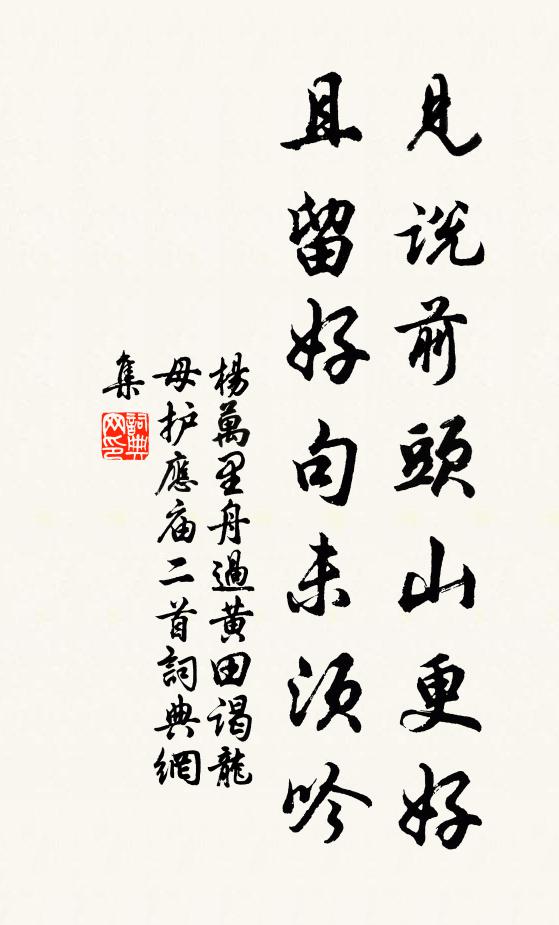 見説前頭山更好
且留好句未須吟
楊萬里舟過黄田謁龍
母护應庙二首詞典網
集
詞典
网印